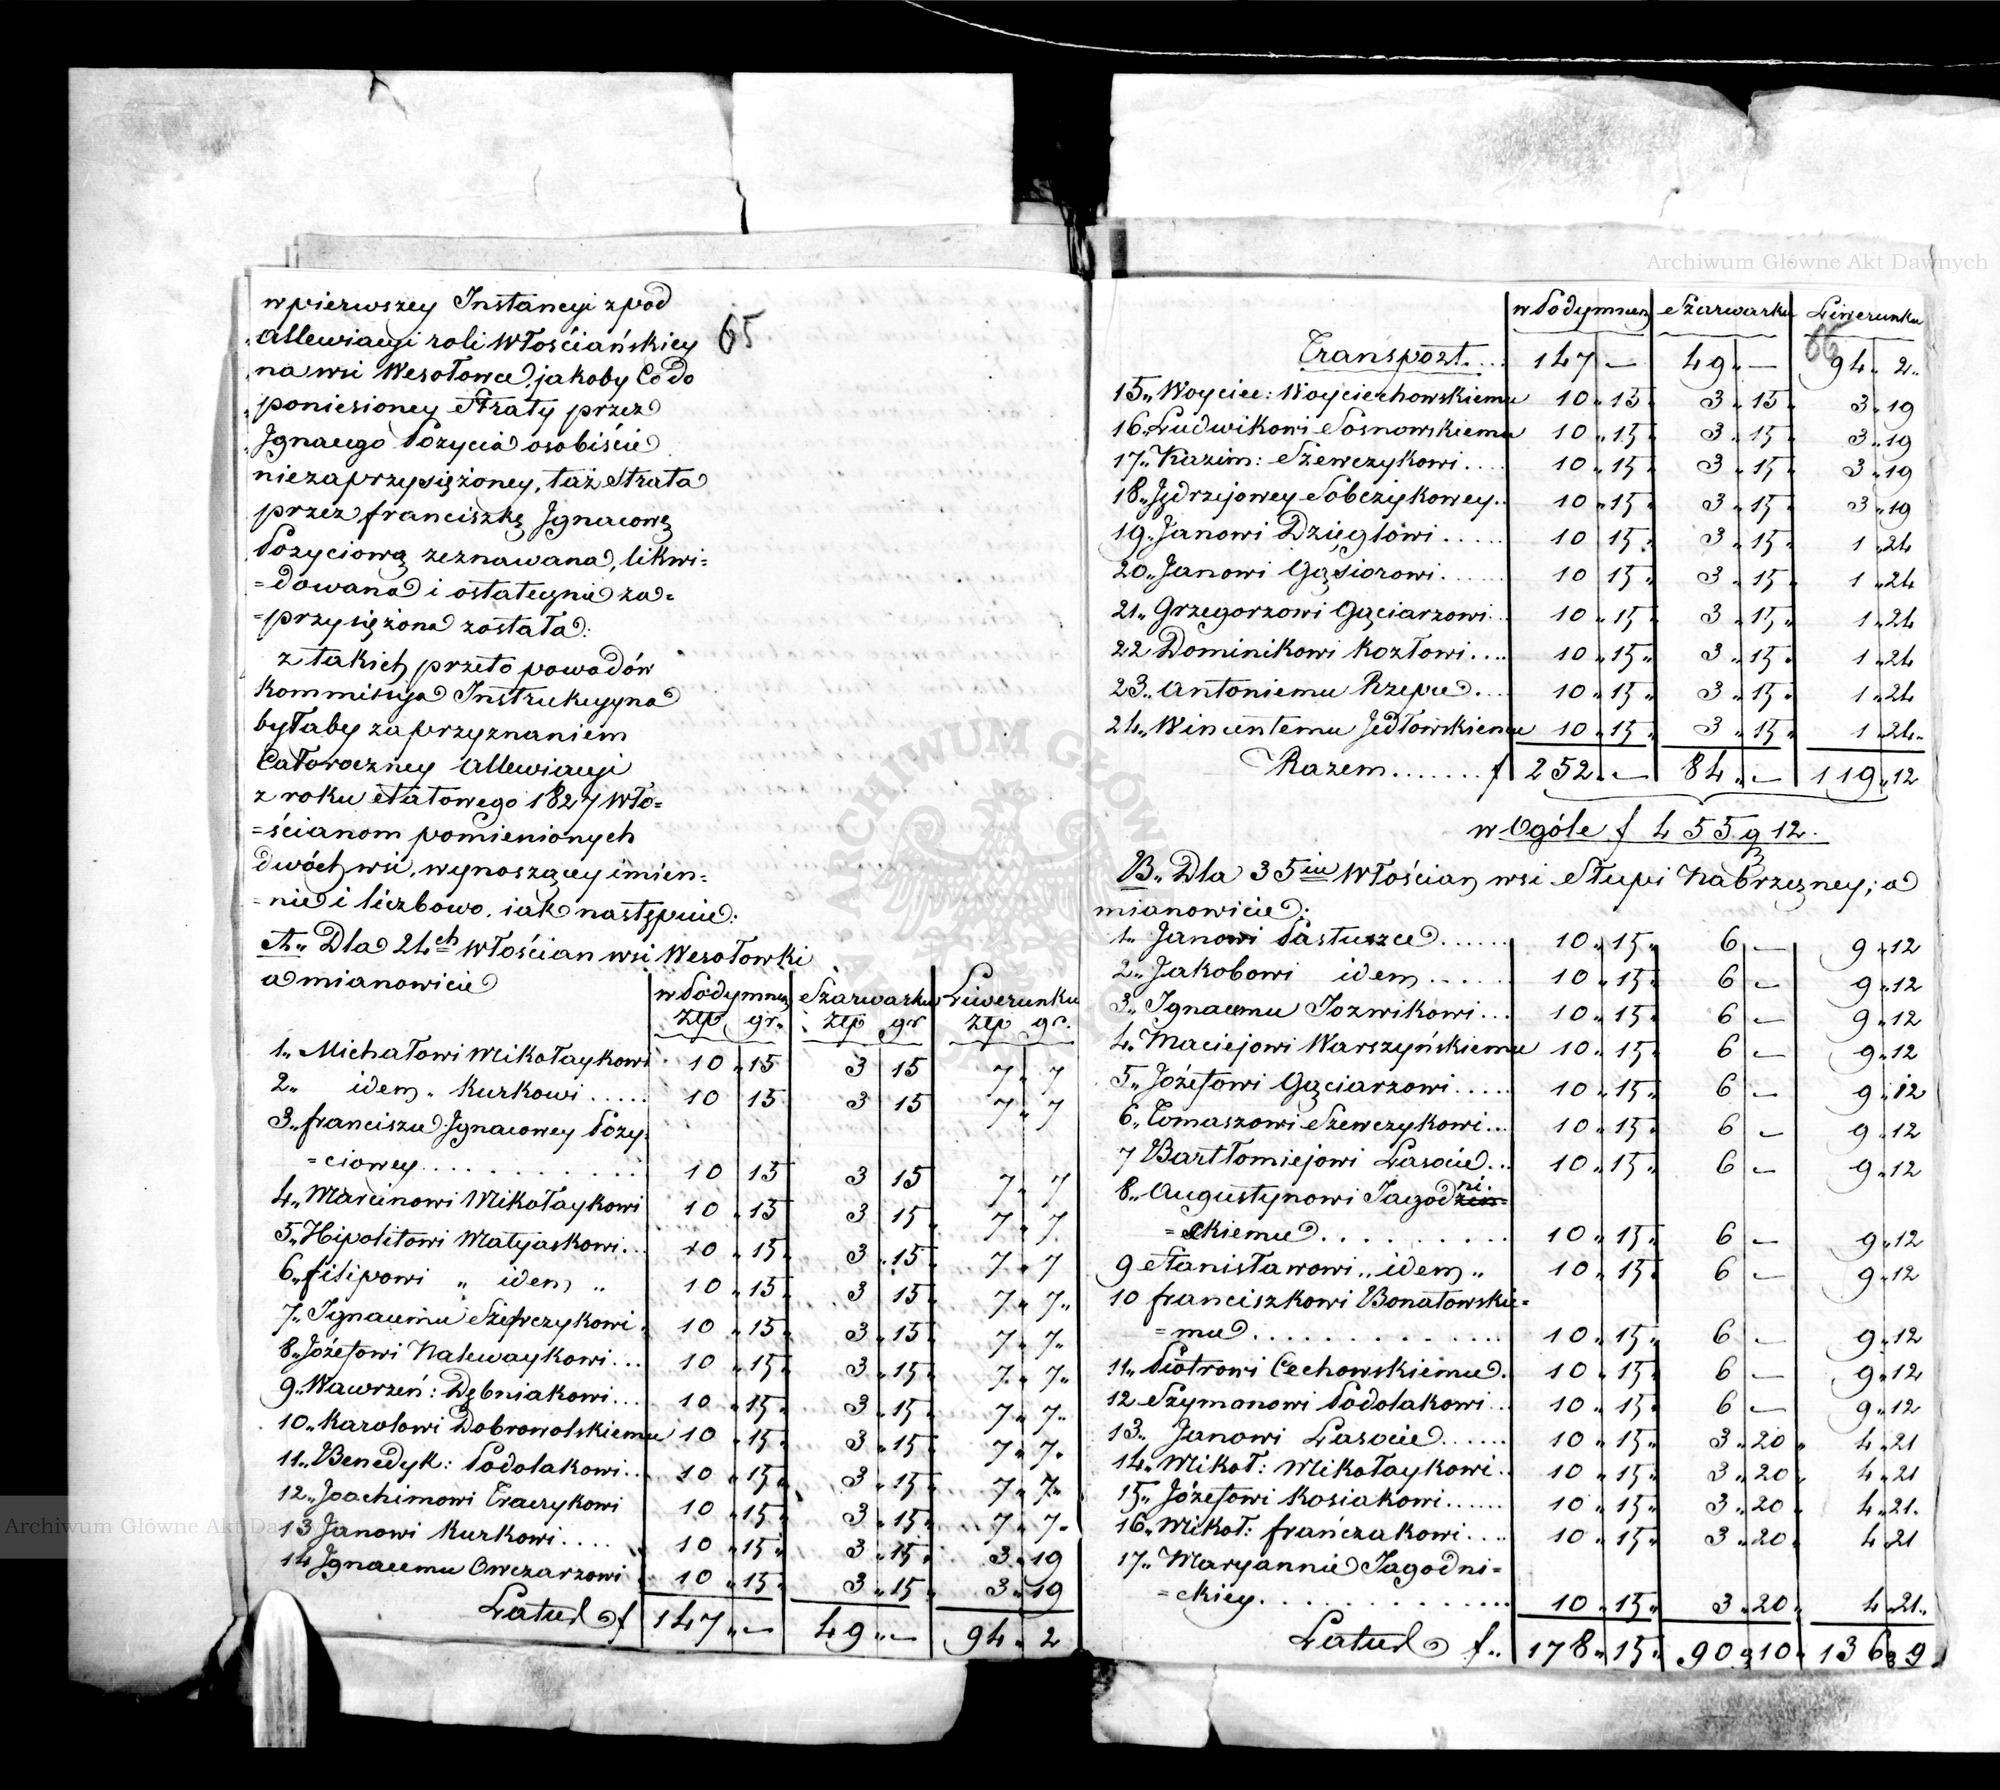 65
w pierwszey Instancyi z pod
allewiacyi roli Włościańskiey
na wsi Wesołowce, jakoby Co do
poniesioney Straty przez
Jgnacego Pozycia osobiście
niezaprzysiężoney, taż Strata
przez franciszkę Jgnacową
Pozyciową zeznawana, likwi=
=dowana i ostatecznie za=
=przysiężona została:
z takich przeto powodów
Kommissyja Instrukcyyna
byłaby za przyznaniem
Całoroczney allewiacyi
z roku etatowego 1827 wło=
=ścianom pomienionych
dwóch wsi, wynoszącey imien=
=nie i liczbowo, iak następuie:
A„ Dla 24ch włościan wsi Wesołowki
a mianowicie
w Podymnem Szarwarku Liwerunku
złp gr. złp gr złp gr.
1„ Michałowi Mikołaykowi 10 „ 15 3 15 7 „ 7
2„ idem „ Kurkowi ..... 10 15 3 15 7 „ 7
3„ franciszce Jgnacowey Pozy=
=ciowey ........... 10 15 3 15 7 „ 7
4„ Marcinowi Mikołaykowi 10 „ 15 3 15 „ 7 „ 7
5„ Hipolitowi Matyjaskowi... 10 „ 15 „ 3 „ 15 „ 7 „ 7
6„ filipowi „ idem „ 10 „ 15 3 15 „ 7 „ 7 „
7„ Jgnacemu Szewczykowi 10 „ 15 „ 3 „ 15 „ 7 „ 7 „
8„ Józefowi Nalewaykowi ... 10 „ 15 „ 3 „ 15 „ 7 „ 7 „
9„ Wawrzeń: Dębniakowi ... 10 „ 15 „ 3 „ 15 „ 7 „ 7 „
10„ Karolowi Dobrowolskiemu 10 „ 15 „ 3 „ 15 „ 7 „ 7 „
11„ Benedyk: Podolakowi .. 10 „ 15 „ 3 „ 15 „ 7 „ 7 „
12„ Joachimowi Traczykowi 10 „ 15 „ 3 „ 15 „ 7 „ 7 „
13 Janowi Kurkowi .... 10 „ 15 „ 3 „ 15 „ 3 „ 19
14 Jgnacemu Owczarzowi 10 „ 15 „ 3 „ 15 „ 3 „ 19
Latus f 147 „ — 49 „ — 94 „ 2
66
w Podymnem Szarwarku Liwerunku
Transport .... 147 — 49 „ — 94 „ 2 „
15„ Woyciec: Woyciechowskiemu 10 „ 15 „ 3 „ 15 „ 3 „ 19
16„ Ludwikowi Sosnowskiemu 10 „ 15 „ 3 „ 15 „ 3 „ 19
17„ Kazim: Szewczykowi .... 10 „ 15 „ 3 „ 15 „ 3 „ 19
18„ Jędrzejowey Sobczykowey .. 10 „ 15 „ 3 „ 15 „ 3 „ 19
19„ Janowi Dzięglowi ..... 10 15 „ 3 „ 15 „ 1 „ 24
20„ Janowi Gąsiorowi ...... 10 15 „ 3 „ 15 „ 1 „ 24
21„ Grzegorzowi Gąciarzowi .. 10 „ 15 „ 3 „ 15 „ 1 „ 24
22 Dominikowi Kozłowi .... 10 „ 15 „ 3 „ 15 „ 1 „ 24
23„ Antoniemu Rzepce ... 10 „ 15 „ 3 „ 15 „ 1 „ 24
24„ Wincentemu Jedłowskiemu 10 „ 15 „ 3 „ 15 „ 1 „ 24 „
Razem ....... f 252 „ — 84 „ — 119 „ 12
w Ogóle f 455 g 12.
B„ Dla 35iu Włościan wsi Słupi Nabrzezney; a
mianowicie:
1„ Janowi Pastuszce ...... 10 „ 15 „ 6 — 9 „ 12
2„ Jakobowi idem ...... 10 „ 15 „ 6 — 9 „ 12
3„ Jgnacemu Jozwikowi ... 10 „ 15 „ 6 — 9 „ 12
4„ Maciejowi Warszyńskiemu 10 „ 15 „ 6 — 9 „ 12
5„ Józefowi Gąciarzowi ..... 10 „ 15 „ 6 — 9 „ 12
6„ Tomaszowi Szewczykowi ... 10 „ 15 „ 6 — 9 „ 12
7 Bartłomiejowi Lasocie ... 10 „ 15 „ 6 — 9 „ 12
8„ Augustynowi Jagodni=
=ckiemu .......... 10 „ 15 „ 6 — 9 „ 12
9 Stanisławowi „ idem „ 10 „ 15 „ 6 — 9 „ 12
10 franciszkowi Bonatowskie=
=mu .............. 10 „ 15 „ 6 — 9 „ 12
11„ Piotrowi Cechowskiemu . 10 „ 15 6 — 9 „ 12
12 Szymonowi Podolakowi .. 10 „ 15 „ 6 — 9 „ 12
13„ Janowi Lasocie ...... 10 „ 15 „ 3 „ 20 „ 4 „ 21
14„ Mikoł: Mikołaykowi .. 10 „ 15 „ 3 „ 20 „ 4 „ 21
15„ Józefowi Kosiakowi ...... 10 „ 15 „ 3 „ 20 „ 4 „ 21 .
16„ Mikoł: frańczakowi .... 10 „ 15 „ 3 „ 20 „ 4 „ 21
17„ Maryannie Jagodni=
=ckiey ............. 10 „ 15 „ 3 „ 20 „ 4 „ 21 „
Latus f „ 178 „ 15 „ 90 g 10 „ 136 g 9
Archiwum Główne Akt Dawnych
Archiwum Główne Akt Dawnych